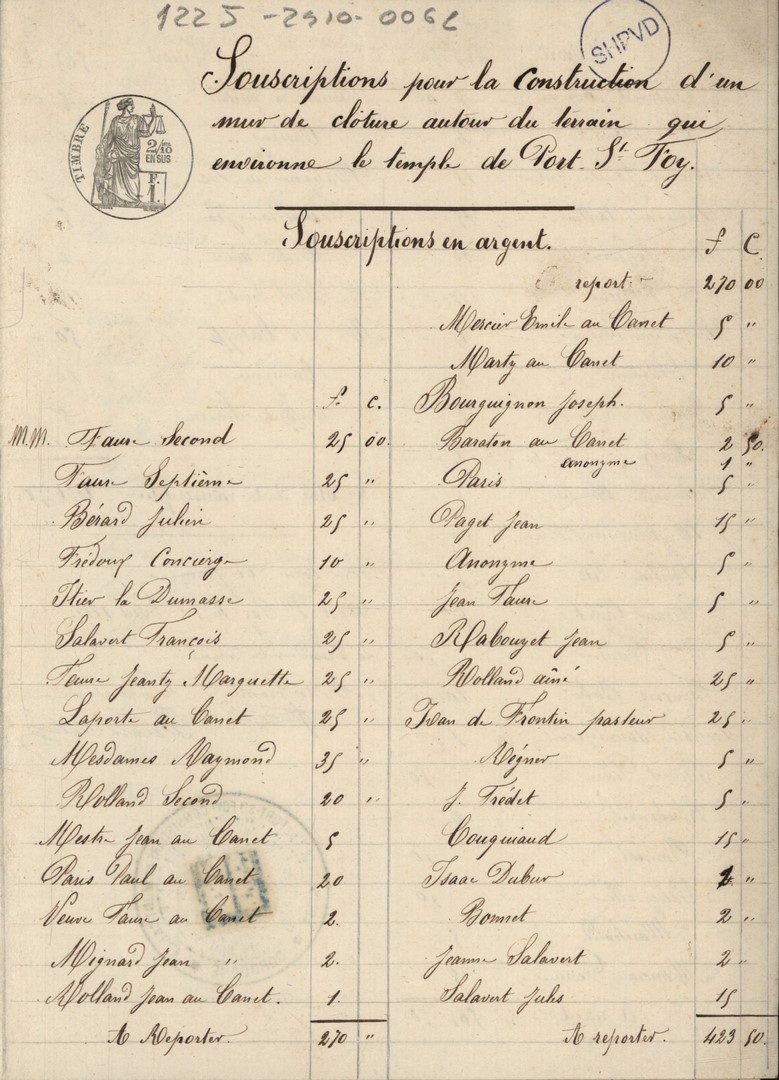 1225-2910-0062
SHPVD
TIMBRE
2/10
EN SUS
F.
1.
Souscriptions pour la Construction d'un
mur de clôture autour du terrain qui
environne le temple de Port. St Foy.
Souscriptions en argent.
f. c.
M.M. Faure Second 25 00.
Faure Septième 25 "
Bérard Julien 25 "
Frédoux Concierge 10 "
Itier la Dumasse 25 "
Salavert François 25 "
Faure Jeanty Marquette 25 "
Laporte au Canet 25 "
Mesdames Raymond 35 "
Rolland Second 20 "
Mestre Jean au Canet 5
Paris Paul au Canet 20
Veuve Faure au Canet 2.
Mignard Jean " 2.
Rolland Jean au Canet. 1.
A Reporter. 270 "
f C
report 270 00
Mercier Emile au Canet 5 "
Marty au Canet 10 "
Bourguignon Joseph. 5 "
Baraton au Canet 2 50.
anonyme 1 "
Paris 5 "
Paget Jean 15 "
Anonyme 5 "
Jean Faure 5 "
Rabouzet Jean 5 "
Rolland aîné 25 "
Ivan de Frontin pasteur 25 "
Régner 5 "
J. Trédet 5 "
Couquiaud 15 "
Isaac Dubur "
Bonnet 2 "
Jeanne Salavert 2 "
Salavert Jules 15
A reporter. 423 50.